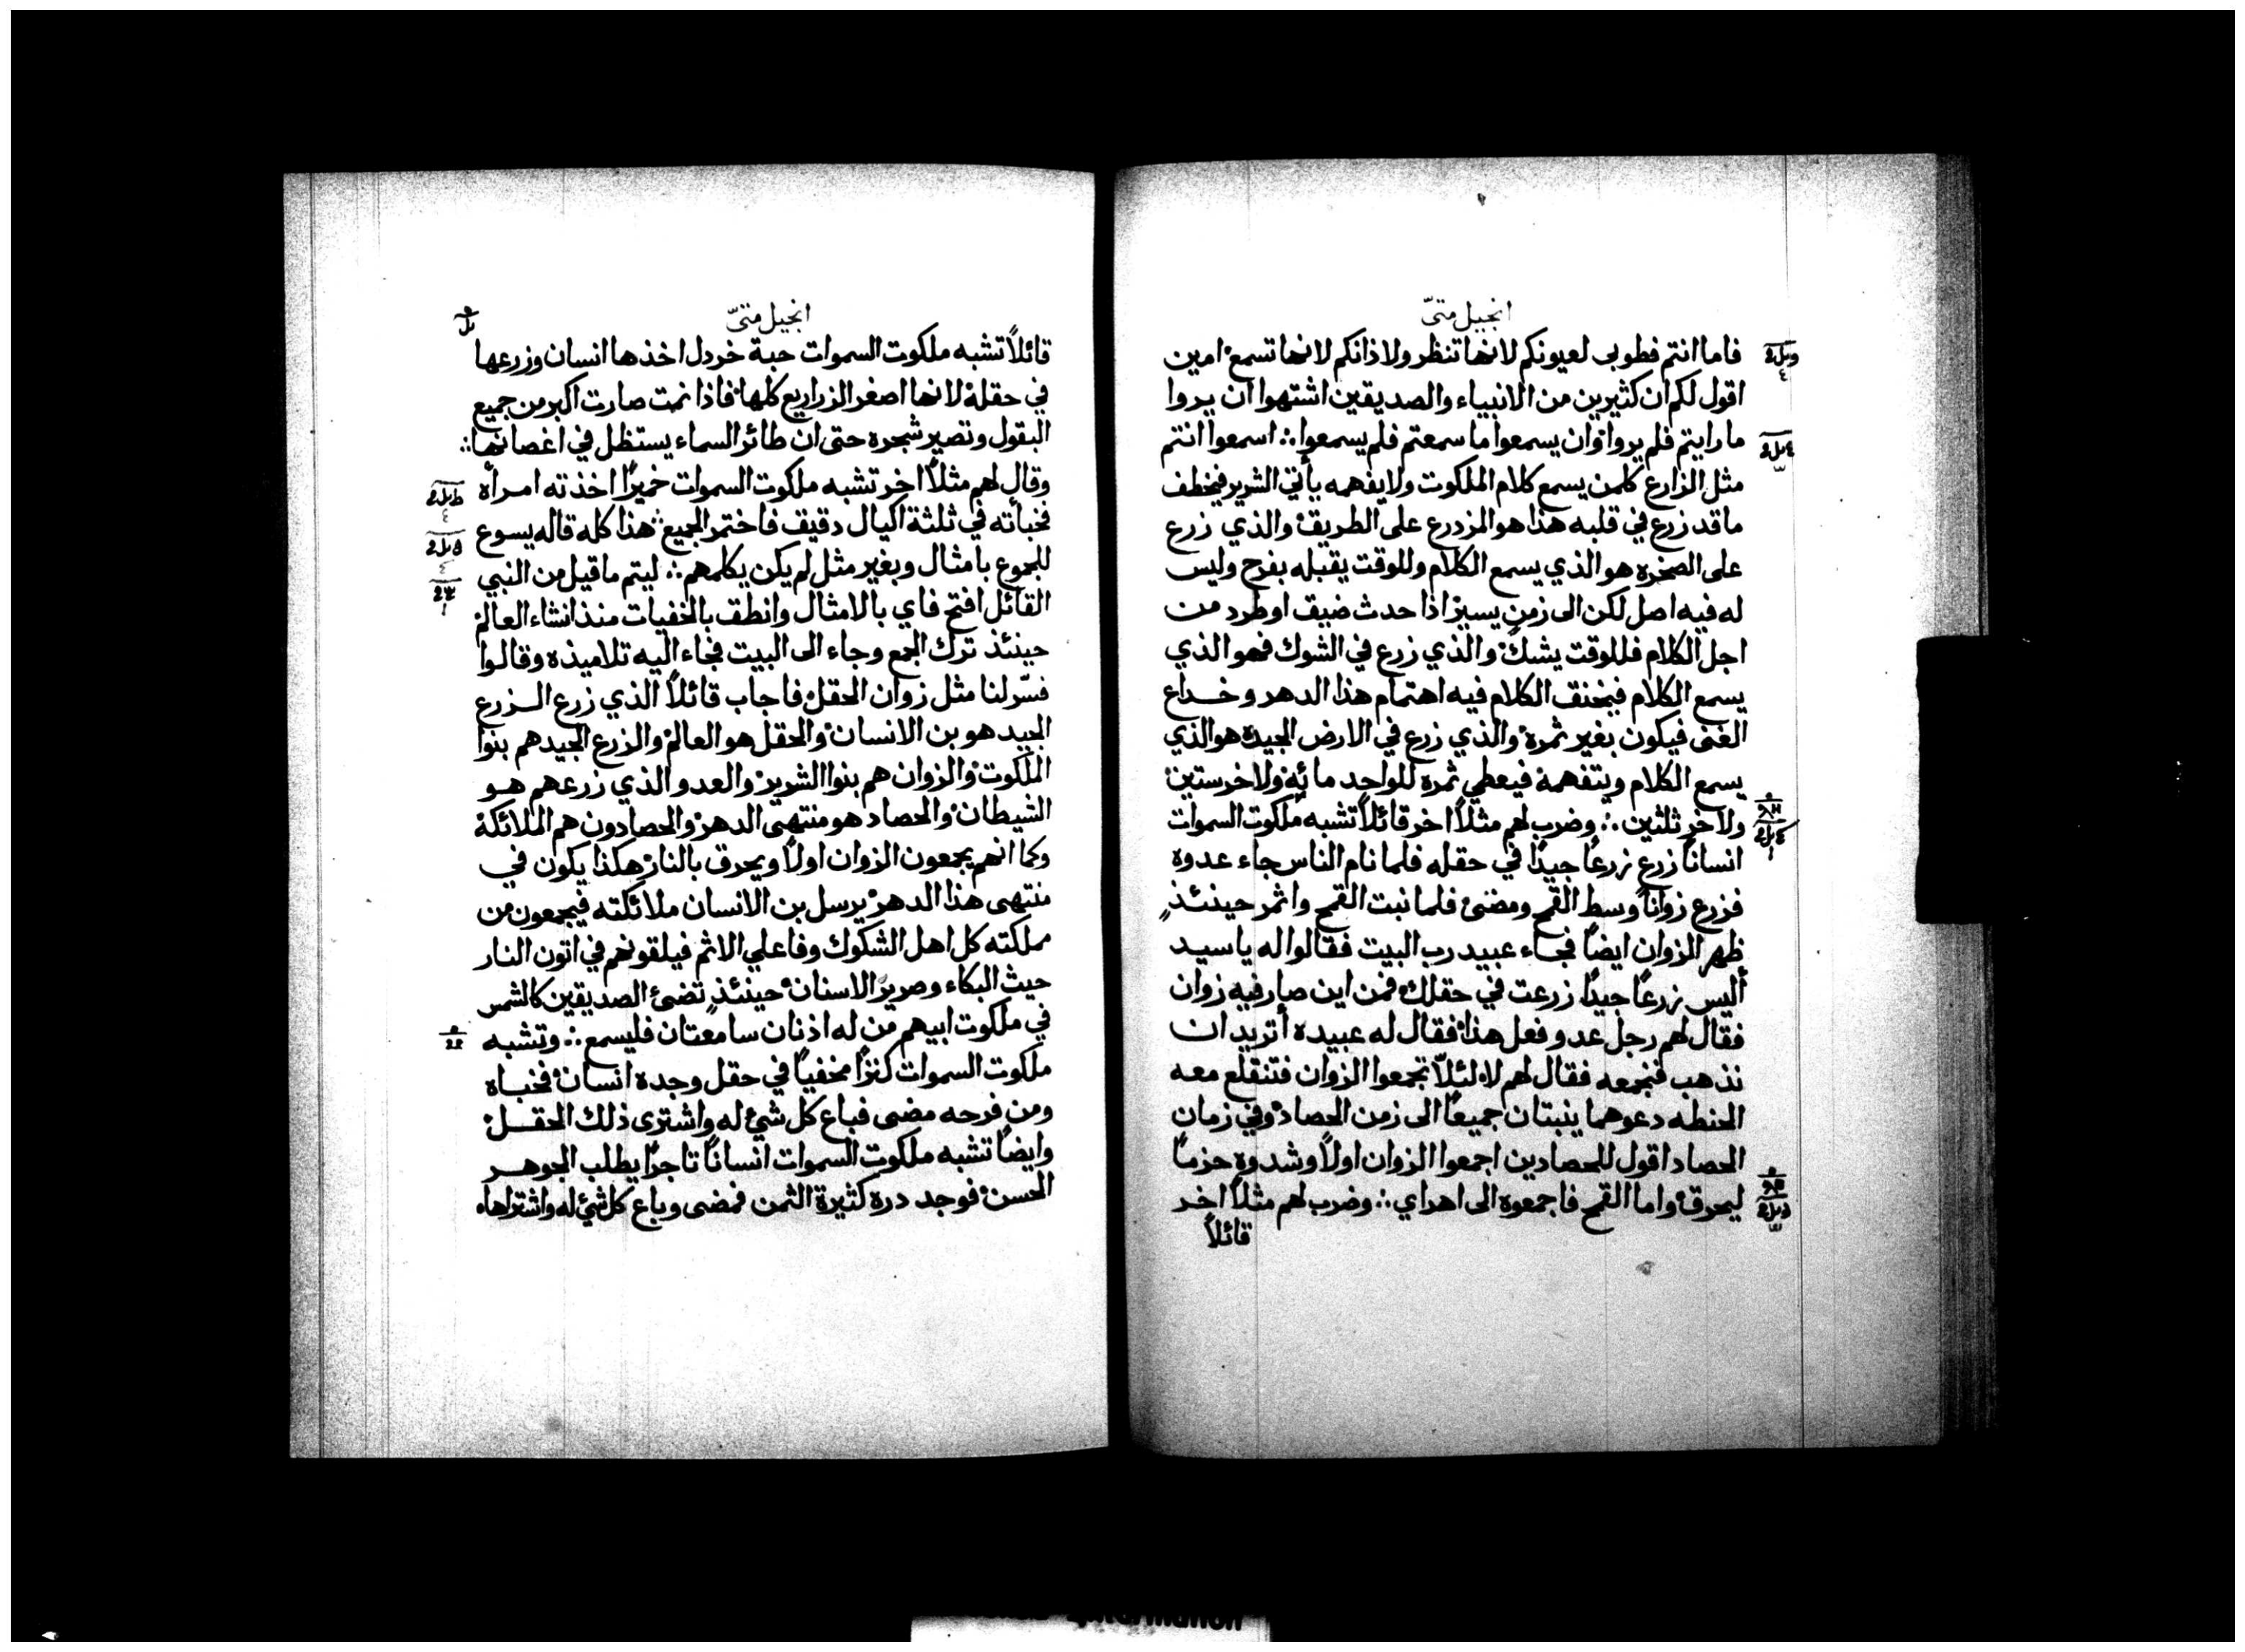 انجيل متىّ
فاما انتم فطوبى لعيونكم لانها تنظر ولاذانكم لانها تسمع امين
اقول لكم ان كثيرين من الانبياء والصديقين اشتهوا ان يروا
ما رايتم فلم يروا وان يسمعوا ما سمعتم فلم يسمعوا ∴ اسمعوا انتم
مثل الزارع كلمن يسمع كلام الملكوت ولا يفهمه يأتي الشرير فيخطف
ما قد زرع في قلبه هذا هو المزدرع على الطريق والذي زرع
على الصخره هو الذي يسمع الكلام وللوقت يقبله بفرح وليس
له فيه اصل لكن الى زمن يسير اذا حدث ضيق او طرد من
اجل الكلام فللوقت يشك والذي زرع في الشوك فهو الذي
يسمع الكلام فيخنق الكلام فيه اهتمام هذا الدهر وخداع
الغنى فيكون بغير ثمرة والذي زرع في الارض الجيدة هو الذي
يسمع الكلام ويتفهمه فيعطي ثمره للواحد مائه ولاخر ستين
ولاخر ثلثين ∴ وضرب لهم مثلاً اخر قائلاً تشبه ملكوت السموات
انساناً زرع زرعاً جيداً في حقله فلما نام الناس جاء عدوه
فزرع زواناً وسط القمح ومضى فلما نبت القمح واثمر حينئذٍ
ظهر الزوان ايضاً فجاء عبيد رب البيت فقالوا له يا سيد
أليس زرعاً جيداً زرعت في حقلك فمن اين صار فيه زوان
فقال لهم رجل عدو فعل هذا فقال له عبيده أتريد ان
نذهب فنجمعه فقال لهم لا لئلاّ تجمعوا الزوان فتنقلع معه
الحنطه دعوهما ينبتان جميعاً الى زمن الحصاد وفي زمان
الحصاد اقول للحصادين اجمعوا الزوان اولاً وشدوه حزماً
ليحرق واما القمح فاجمعوه الى اهراي ∴ وضرب لهم مثلاً اخر
قائلاً
انجيل متىّ
قائلاً تشبه ملكوت السموات حبة خردل اخذها انسان وزرعها
في حقله لانها اصغر الزراريع كلها فاذا نمت صارت اكبر من جميع
البقول وتصير شجره حتى ان طائر السماء يستظل في اغصانها ∴
وقال لهم مثلاً اخر تشبه ملكوت السموات خميراً اخذته امرأة
فخبأته في ثلثة اكيال دقيق فاختمر الجميع هذا كله قاله يسوع
للجموع بامثال وبغير مثل لم يكن يكلمهم ∴ ليتم ما قيل من النبي
القائل افتح فاي بالامثال وانطق بالخفيات منذ انشاء العالم
حينئذ ترك الجمع وجاء الى البيت فجاء اليه تلاميذه وقالوا
فسّر لنا مثل زوان الحقل فاجاب قائلاً الذي زرع الزرع
الجيد هو بن الانسان والحقل هو العالم والزرع الجيد هم بنوا
الملكوت والزوان هم بنوا الشرير والعدو الذي زرعهم هو
الشيطان والحصاد هو منتهى الدهر والحصادون هم الملائكة
وكما انهم يجمعون الزوان اولاً ويحرق بالنار هكذا يكون في
منتهى هذا الدهر يرسل بن الانسان ملائكته فيجمعون من
مملكته كل اهل الشكوك وفاعلي الاثم فيلقونهم في اتون النار
حيث البكاء وصرير الاسنان حينئذٍ تضئ الصديقين كالشمس
في ملكوت ابيهم من له اذنان سامعتان فليسمع ∴ وتشبه
ملكوت السموات كنزاً مخفياً في حقل وجده انسان فخباه
ومن فرحه مضى فباع كل شئ له واشترى ذلك الحقل
وايضاً تشبه ملكوت السموات انساناً تاجراً يطلب الجوهر
الحسن فوجد درة كثيرة الثمن فمضى وباع كل شئ له واشتراها